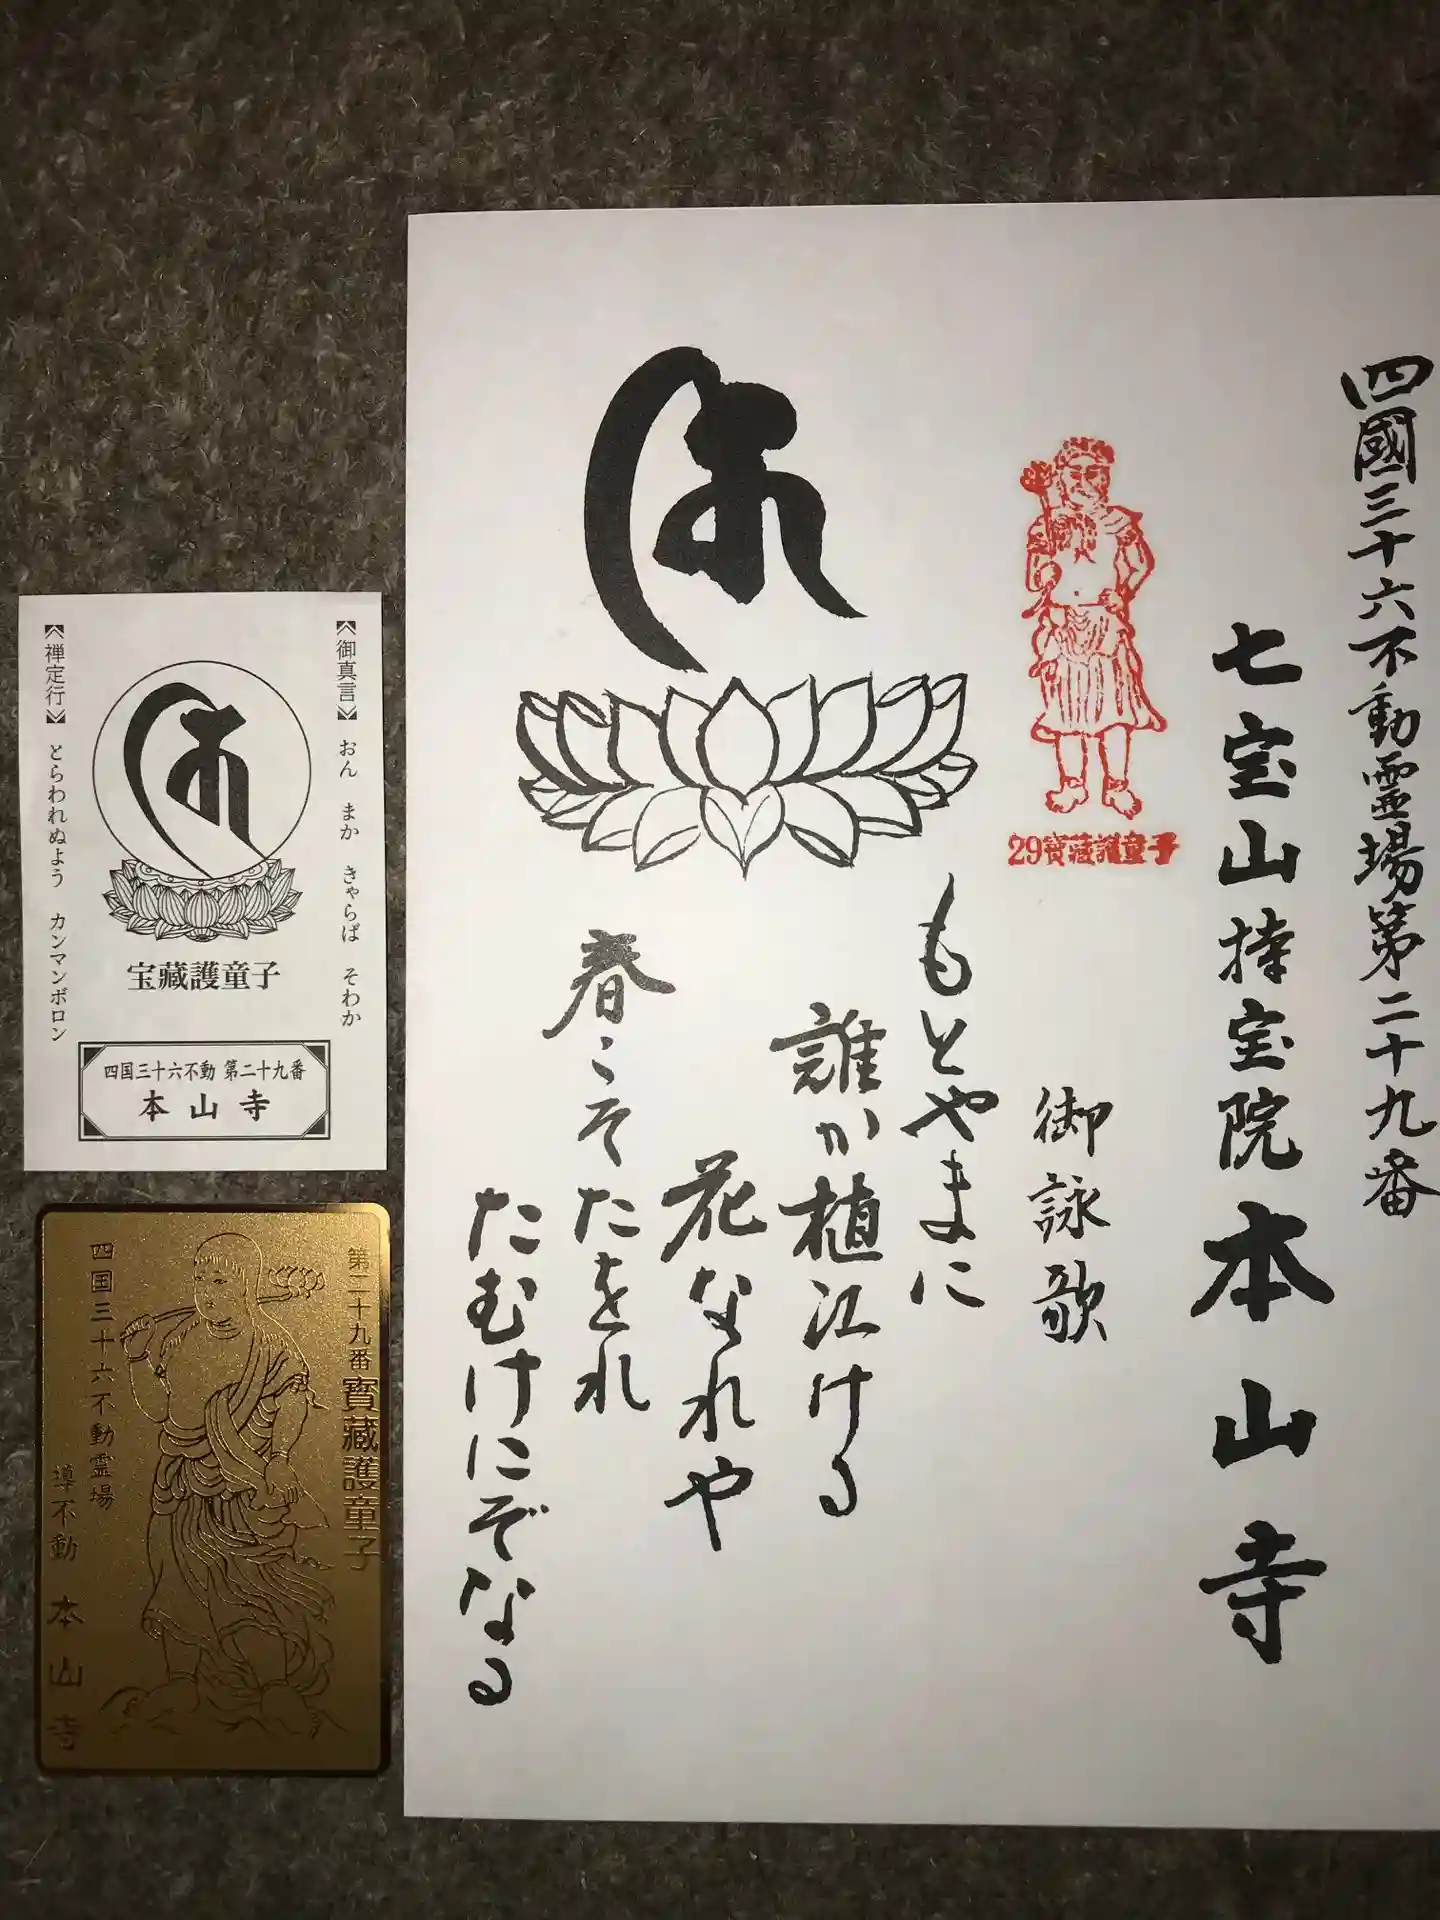 四國三十六不動霊場第二十九番
七宝山持宝院本山寺
29寶藏護童子
御詠歌
もとやまに
誰か植江ける
花なれや
春こそたをれ
たむけにぞなる
《御真言》 おん まか きゃらば そわか
《禅定行》 とらわれぬよう カンマンボロン
宝藏護童子
四国三十六不動 第二十九番
本山寺
第二十九番寳藏護童子
四国三十六不動霊場
導不動 本山寺